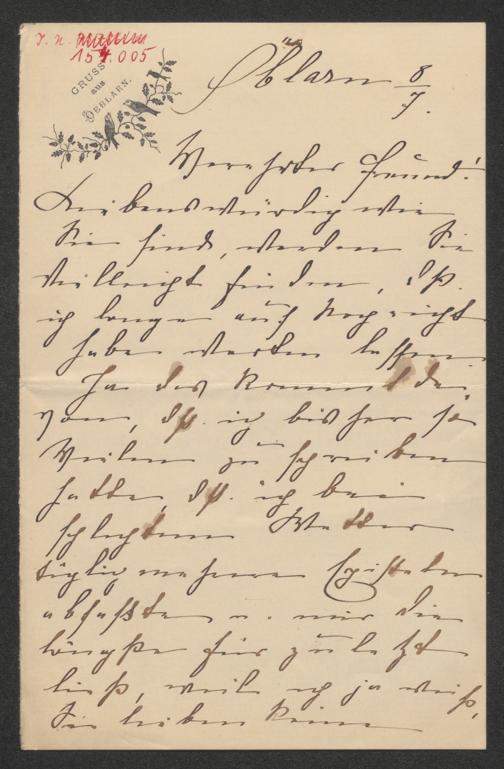 I. N.
154.005
GRUSS
aus
OEBLARN.
Öblarn 8/7.
Verehrter Freund!
Liebenswürdig wie
Sie sind, werden Sie
vielleicht finden, dß.
ich lange auf Nachricht
habe warten lassen.
Ja das kommt da-
von, dß. ich bisher so
Weilen zu schreiben
hatte, dß. ich bei
schlechtem Wetter
täglich mehrere Episteln
abfaßte u. mir die
längste für zuletzt
ließ, weil ich ja weiß,
Sie lieben keine